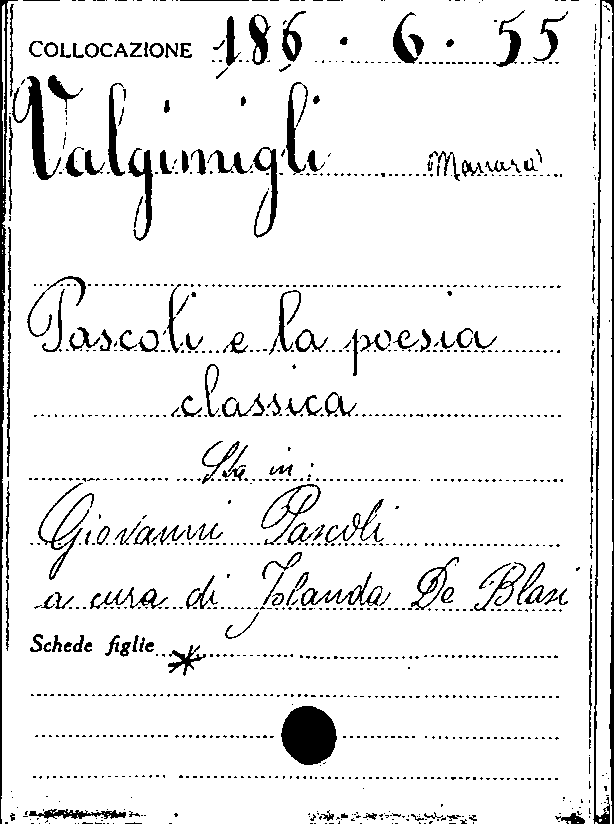 COLLOCAZIONE 186 . 6 . 55
Valgimigli Manara
Pascoli e la poesia
classica
Sta in:
Giovanni Pascoli
a cura di Jolanda De Blasi
Schede figlie *